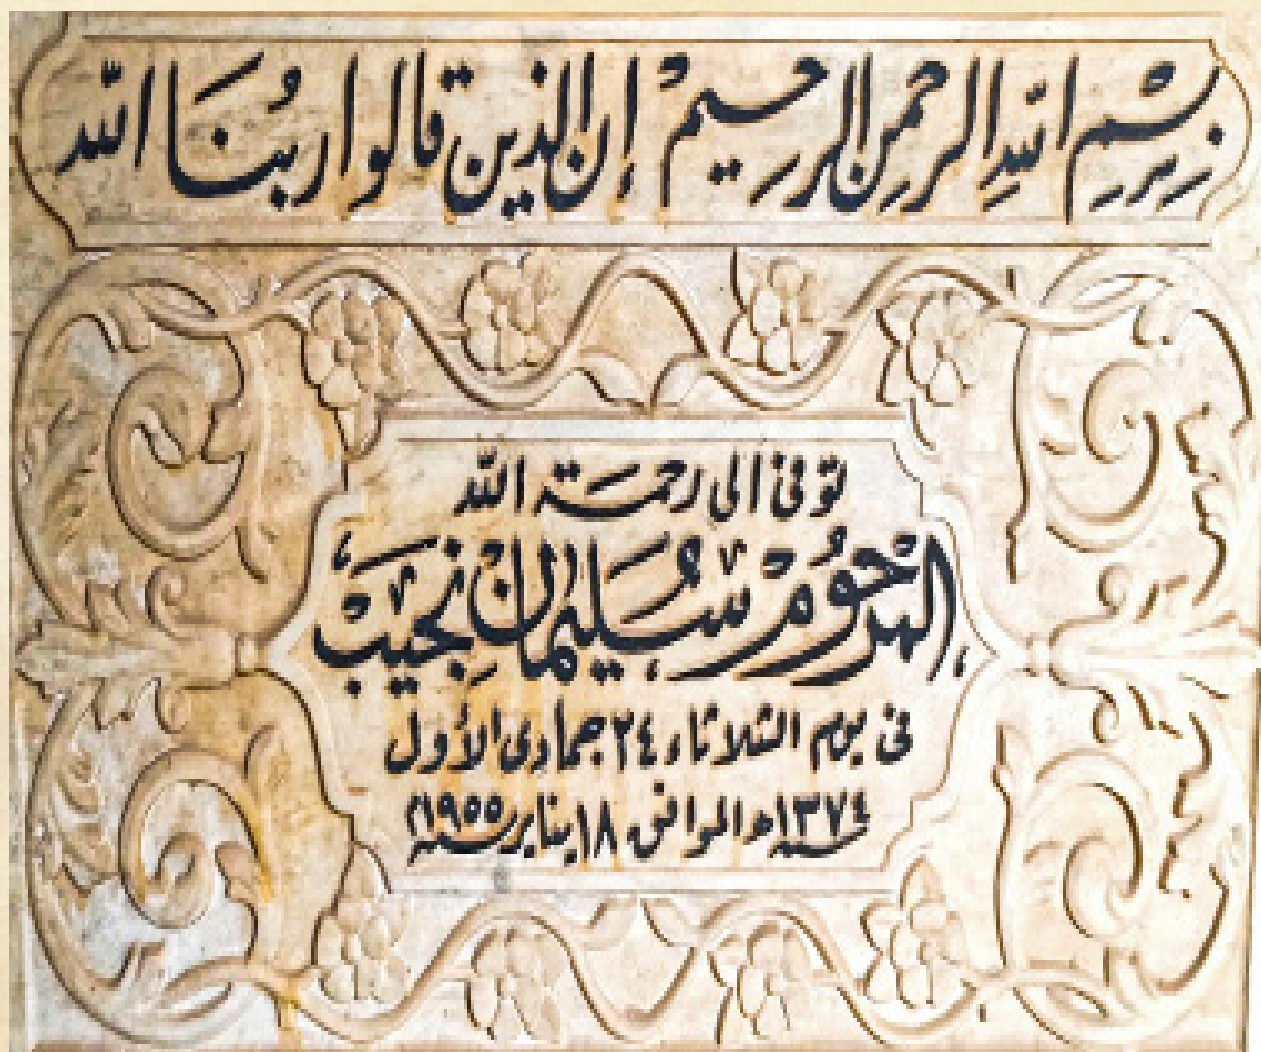 بِسْمِ اللهِ الرحمنِ الرحيم إن الذين قالوا ربُنا الله
توفى الى رحمة الله
المرحوم سُليمان نجيب
فى يوم الثلاثاء ٢٤ جمادى الأول
سنة ١٣٧٤ هـ الموافق ١٨ يناير سنة ١٩٥٥ م